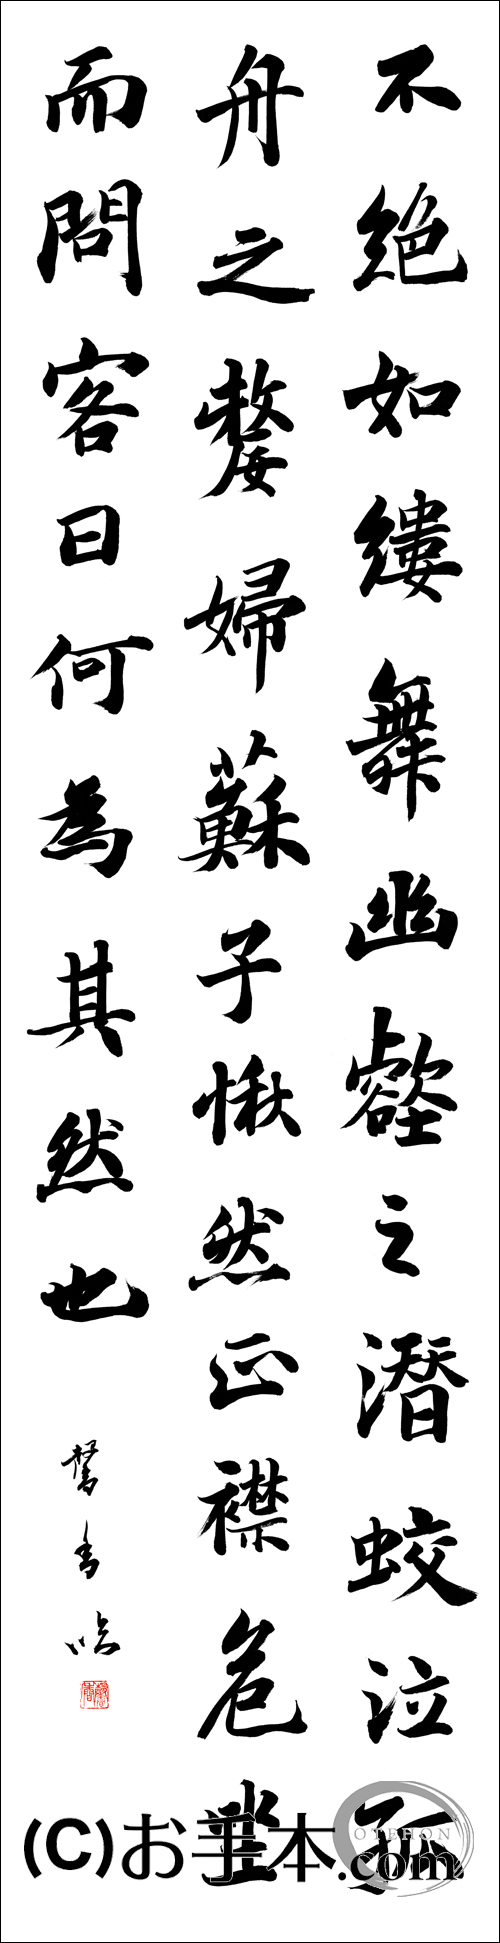 不絶如縷舞幽壑之潜蛟泣孤
舟之嫠婦蘇子愀然正襟危坐
而問客曰何為其然也
香臨
(C)お手本.com
OTEHON